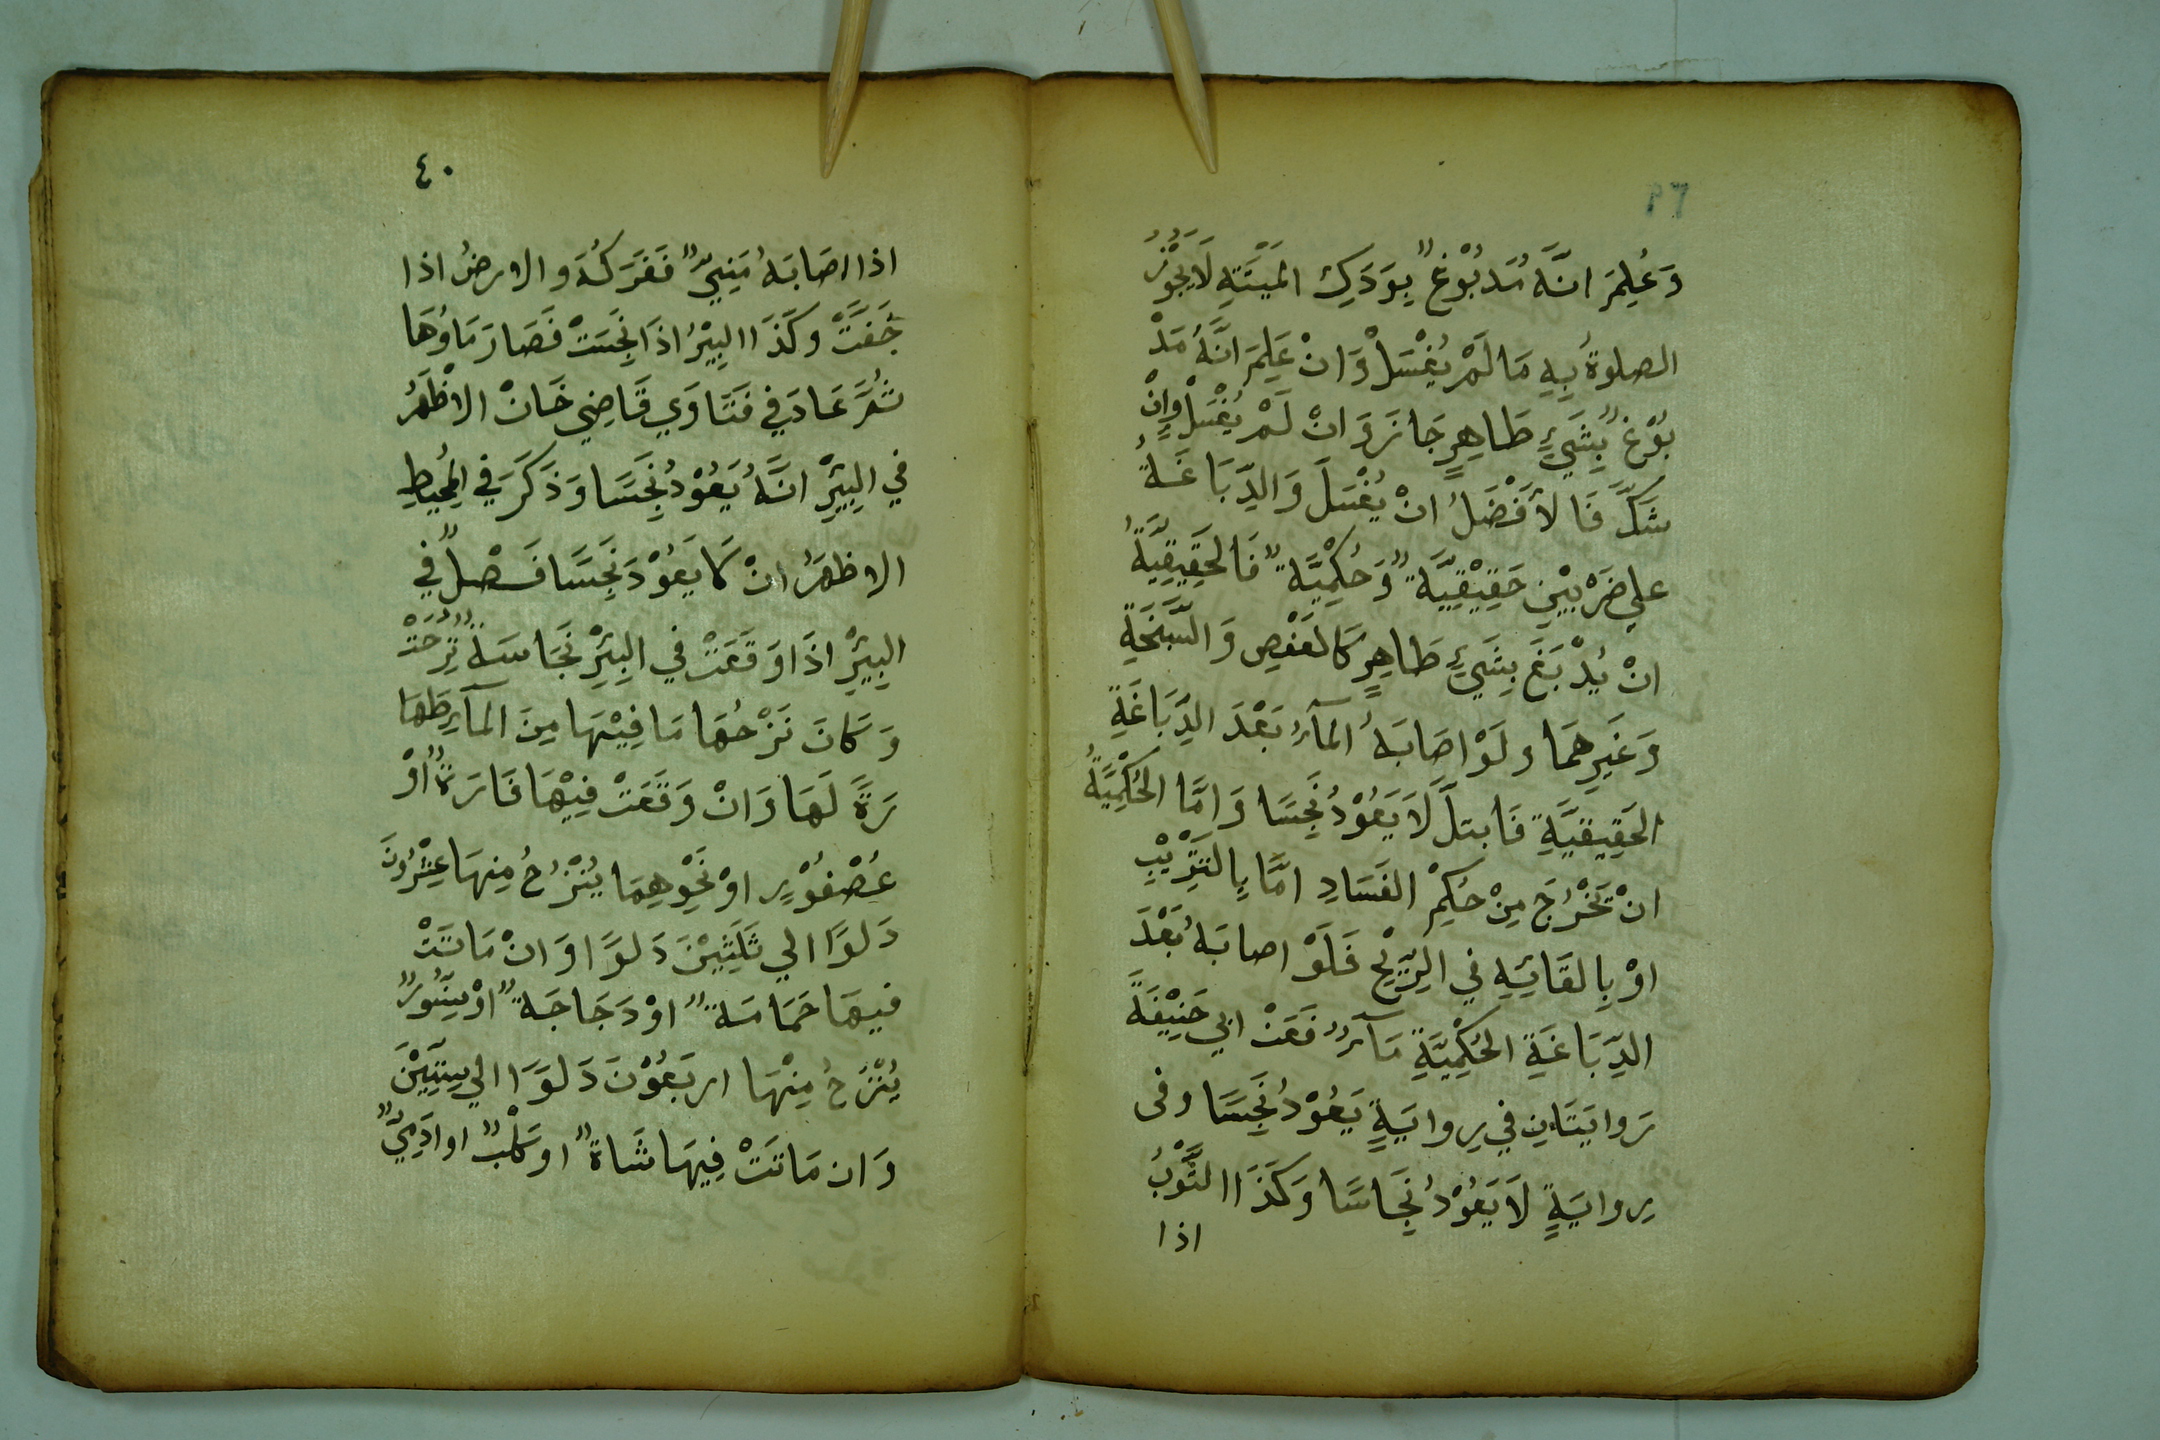 وَعُلِمَ انَّهُ مَدبُوْغٌ بِوَدَكِ المَيْتَةِ لَايَجُوْزُ
الصلوةُ بِهِ مَالَمْ يُغْسَلْ وَانْ عَلِمَ انَّهُ مَدْ
بُوْغٌ بِشَيْءٍ طَاهِرٍ جَازَ وَانْ لَمْ يُغْسَلْ وَاِنْ
شَكَّ فَالأَفْضَلُ انْ يُغْسَلَ وَالدِّبَاغَةُ
علي ضَرْبَيْنِ حَقِيْقِيَّةٌ وَحُكْمِيَّةٌ فَالحَقِيقِيَّةُ
انْ يُدْبَغَ بِشَيْءٍ طَاهِرٍ كَالعَفْصِ وَالسَّبْخَةِ
وَغَيرِهِمَا ولَوْ اصَابَهُ المآءُ بَعْدَ الدِّبَاغَةِ
الحَقِيقِيَّةِ فَابتلَّ لَايَعُوْدُ نَجِسًا وَامَّا الحُكْمِيَّةُ
انْ تَخْرُجَ مِنْ حُكِمْ الفَسَادِ امَّا بِالتَتْرِيْبِ
اوْ بِالقَائِهِ في الرِّيْحِ فَلَوْ اصابَهُ بَعْدَ
الدِّبَاغَةِ الحُكْمِيَّةِ مَآءٌ فَعَنْ ابي حَنِيْفَةَ
رَوايَتَانِ في رِوايَةٍ يَعُوْدُ نَجِسًا وفى
رِوايَةٍ لَايَعُوْدُ نَجِاسًا وَكَذَا الثَّوْبُ
اذا
٤٠
اذا اصَابَهُ مَنِيٌّ فَفَرَكَهُ والارضُ اذا
جَفَّتْ وكَذَا البِيْرُ اذَا نَجِسَتْ فَصَارَ مَاوُهَا
ثُمَّ عَادَ في فَتَاوَي قَاضِي خَانْ الاظْهَرُ
في البِيْرِ انَّهُ يَعُوْدُ نَجِسًا وَذَكَرَ في المُحِيطِ
الاظهَرُ انْ كَايَعُوْدَ نَجِسًا فَصْلٌ في
البِيْرِ اذَا وَقَعَتْ في البِيْرِ نَجَاسَةٌ نُزِحَتْ
وَكَانَ نَزْحُهَا مَافِيْهَا مِنَ المآءِ طَهَا
رَةً لَهَا وَانْ وَقَعَتْ فِيْهَا فَارَةٌ اوْ
عُصْفُوْرٍ اوْ نَحْوِهِمَا يُنْزَحُ مِنهَا عِشْرُونَ
دَلوًا الي ثَلَثِيْنَ دَلوًا وَانْ مَاتَتْ
فيهَا حَمَامَةٌ اوْ دَجَاجَةٌ اوْ سِنَّورٌ
يُنْزَحُ مِنْهَا اربَعُوْنَ دَلوًا الي سِتِّيْنَ
وَان مَاتَتْ فِيهَا شَاةٌ اوكَلْبٌ اوادَمِيٌّ